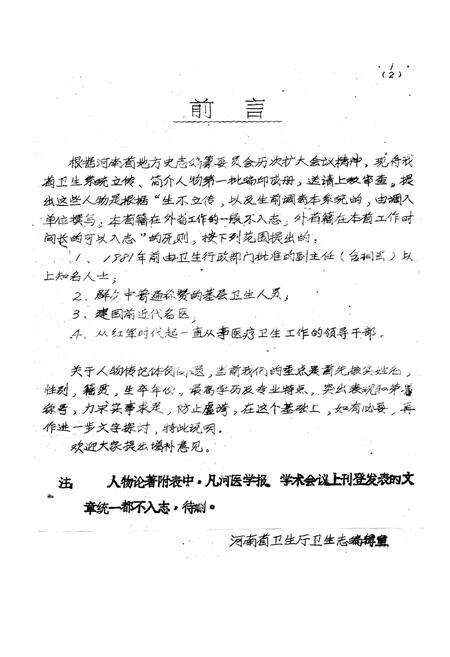 1
(2)
前言
根据河南省地方史志编纂委员会历次扩大会议精神,现将我
省卫生系统立传、简介人物第一批编印成册,送请上级审查。提
出这些人物是根据“生不立传,以及生前调离本系统的,由调入
单位撰写,本省籍在外省工作的一般不入志,外省籍在本省工作时
间长的可以入志”的原则,按下列范围提出的:
1、1981年前由卫生行政部门批准的副主任(含相当)以
上知名人士;
2、群众中普遍称赞的基层卫生人员;
3、建国前近代名医,
4、从红军时代起一直从事医疗卫生工作的领导干部。
关于人物传记体例问题,当前我们的重点是首先核实姓名,
性别,籍贯,生卒年份,最高学历及专业特点,突出表现和荣誉
称号,力求实事求是,防止虚夸,在这个基础上,如有必要,再
作进一步文字探讨,特此说明。
欢迎大家提出增补意见。
注 人物论著附表中,凡河医学报、学术会议上刊登发表的文
章统一都不入志,待删。
河南省卫生厅卫生志编辑室